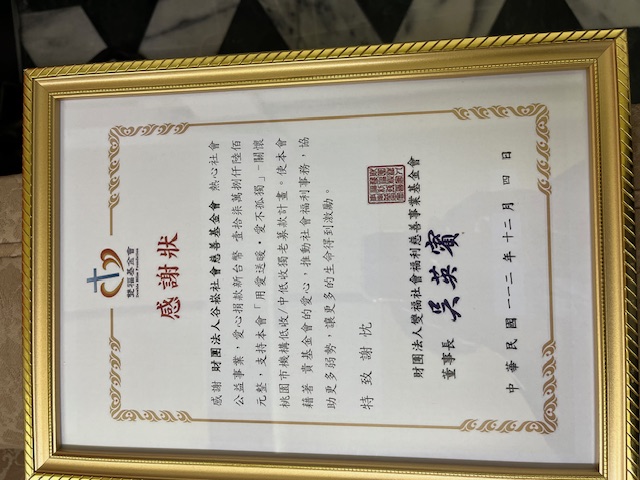 雙福基金會
感謝狀
感謝 財團法人谷崧社會慈善基金會 熱心社會
公益事業，愛心捐款新台幣 壹拾柒萬捌仟陸佰
元整，支持本會「用愛送暖，愛不孤獨」-關懷
桃園市機構低收/中低收獨老募款計畫。使本會
藉著 貴基金會的愛心，推動社會福利事務，協
助更多弱勢，讓更多的生命得到激勵。
特致謝忱
財團法人雙福社會福利慈善事業基金會
董事長 吳英賓
中華民國一一二年十二月四日